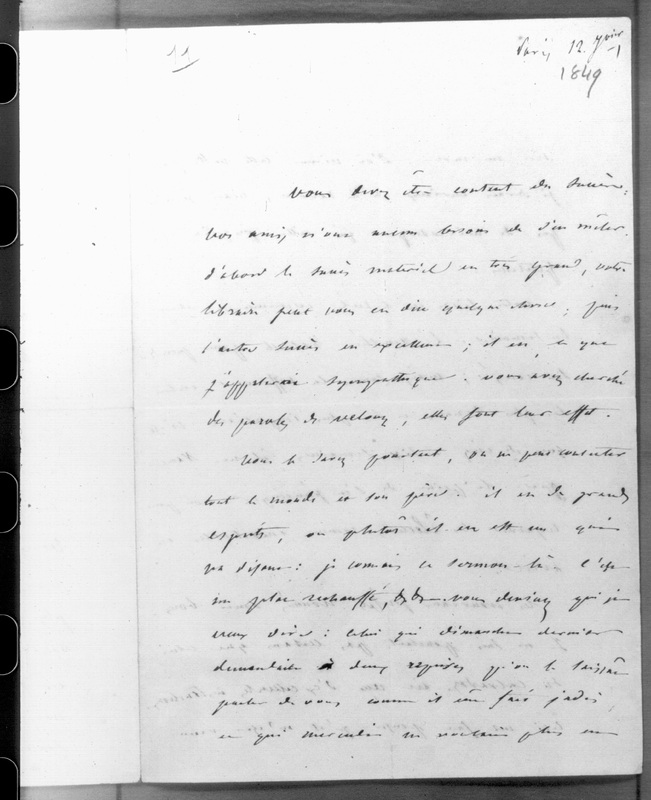 11
Paris, 12
1849
vous devez être content du succès :
vos amis, n'ont aucun besoin de s'en mêler.
d'abord le succès matériel en très grand, votre
libraire peut vous en dire quelque chose ; puis
l'autre succès en excellence ; il est ce que
j'appellerai sympathique. vous avez cherché
des paroles de velours, elles font leur effet.
vous le savez pourtant, on ne peut contenter
tout le monde et son père. il est de grands
esprits, ou plutôt il en est un qui
va disant : je connais ce sermon là c'est
un plat rechauffé, &c &c vous devinez qui je
veux dire : celui qui dimanche dernier
demandait à deux reprises qu'on le laissât
parler de vous comme il eût fait jadis,
ce qui mercredi ne voulait plus en